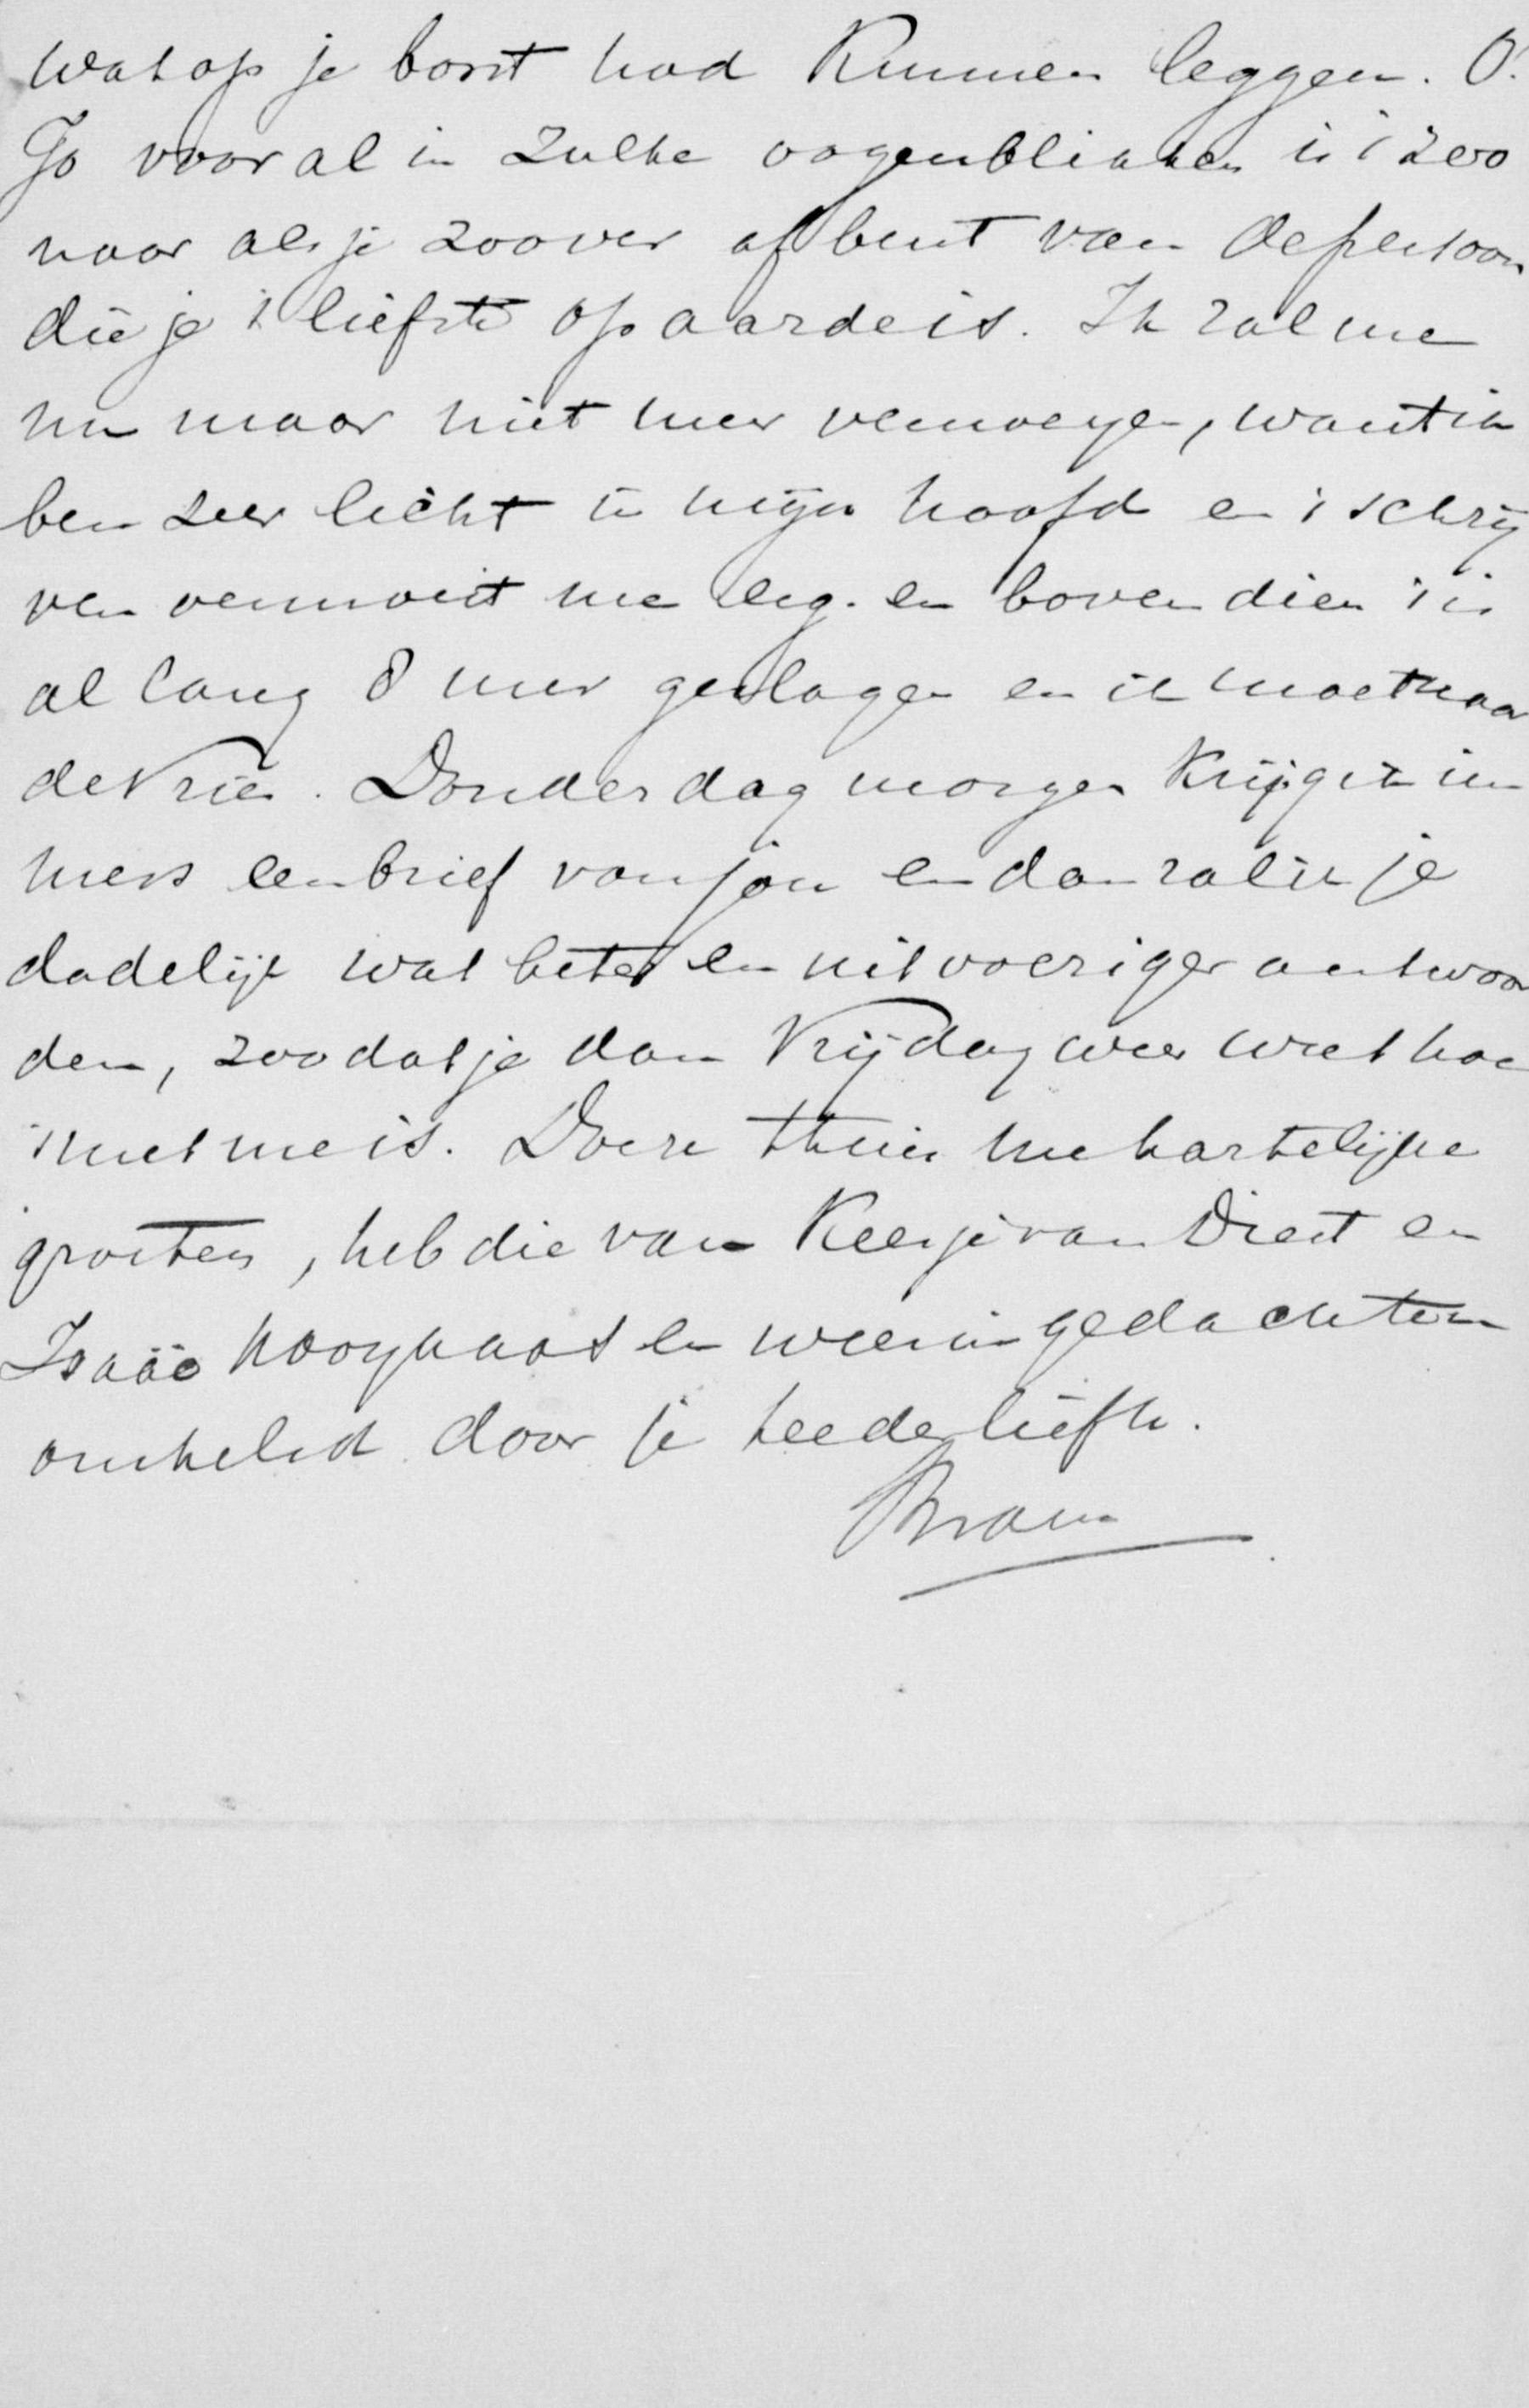 wat op je borst had kunnen leggen. O!
Jo vooral in zulke oogenblikken is 't zoo
naar als je zoover af bent van de persoon
die je 't liefste op aarde is. Ik zal me
nu maar niet meer vermoeyen, want ik
ben zeer licht in mijn hoofd en 't schrij
ven vermoeit me erg. en bovendien 't is
al lang 8 uur geslagen en ik moet naar
de Vries. Donderdag morgen krijg ik im
mers een brief van jou en dan zal ik je
dadelijk wat beter en uitvoeriger antwoor
den, zoodat je dan Vrijdag weer weet hoe
't met me is. Doe ze thuis me hartelijke
groeten, heb die van Keesje van Driest en
Isaäc Hooykaas en wees in gedachten
omhelsd door je teederliefh.
Bram